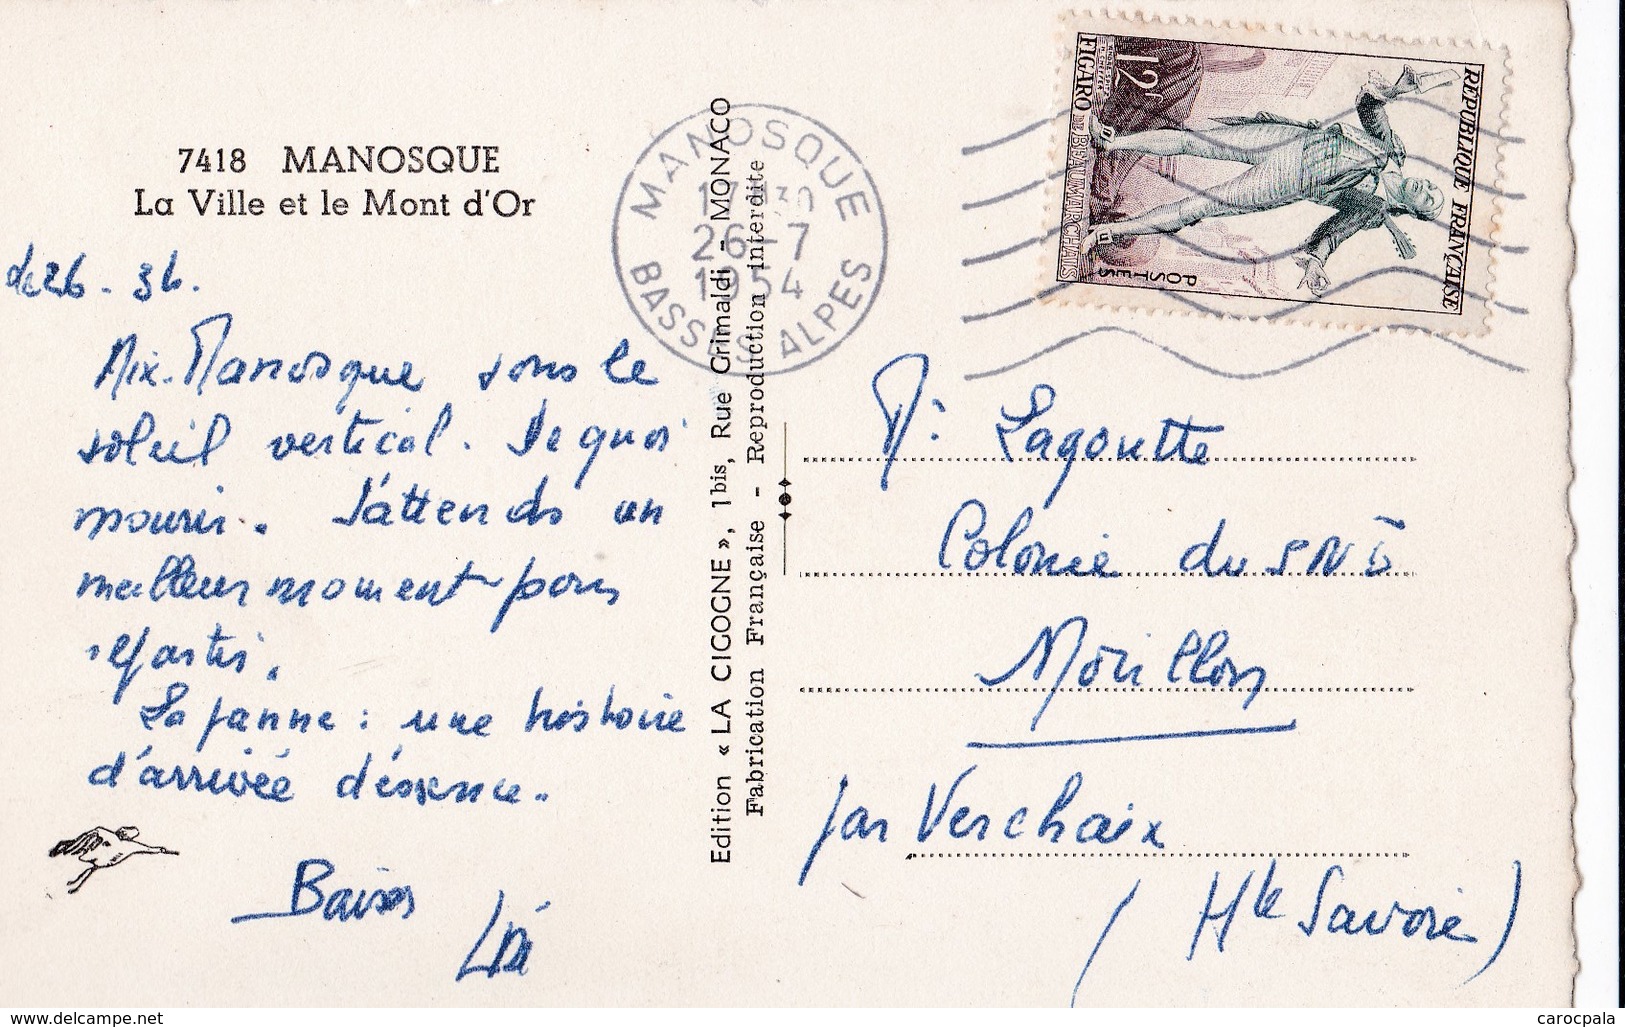 7418 MANOSQUE
La Ville et le Mont d'Or
Aix-Manosque sous le
soleil vertical. De quoi
mourir. J'attends un
meilleur moment pour
repartir.
La panne : une histoire
d'arrivée d'éssence.
Baisers
Edition « LA CIGOGNE », 1 bis, Rue Grimaldi - MONACO
Fabrication Française - Reproduction interdite
MANOSQUE
17 H30
26-7
1954
BASSES ALPES
RÉPUBLIQUE FRANÇAISE
POSTES
12F
FIGARO DE BEAUMARCHAIS
Lagoutte
Colonie du
Morillon
par Verchaix
(Hte Savoie)
www.delcampe.net
carocpala